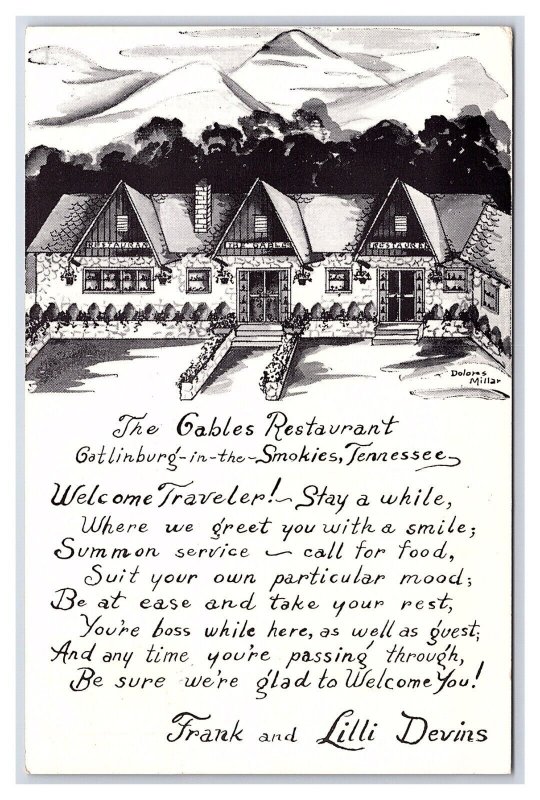 RESTAURANT
THE GABLES
RESTAURANT
Dolores
Millar
The Gables Restaurant
Gatlinburg-in-the-Smokies, Tennessee
Welcome Traveler! Stay a while,
Where we greet you with a smile;
Summon service — call for food,
Suit your own particular mood;
Be at ease and take your rest,
You're boss while here, as well as guest;
And any time you're passing through,
Be sure we're glad to Welcome You!
Frank and Lilli Devins